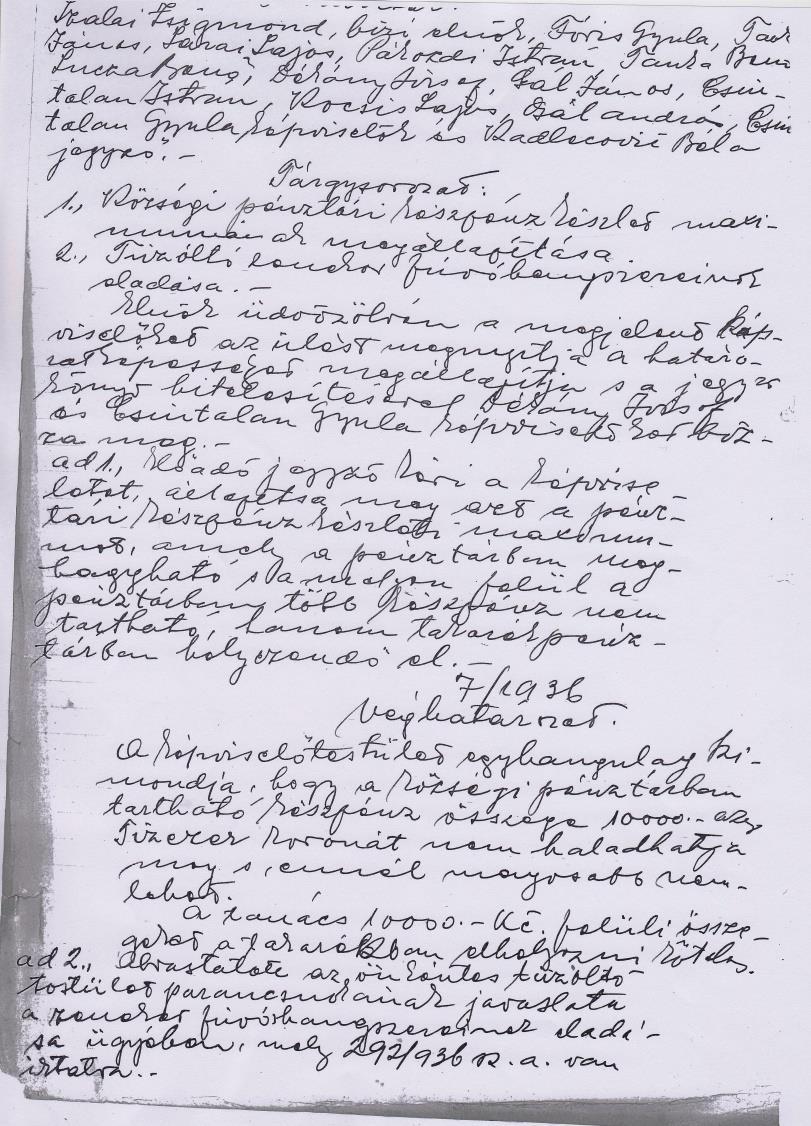 Szalai Zsigmond, bizi elnök, Fóris Gyula,
János, Sárai Lajos, István Tanka Benő
Lucza Benő, Dékány József, Gál János, Csin-
talan István, Kocsis Lajos, Gál András, Csin
talan Gyula képviselők és Kadlecovič Béla
jegyző.-
Tárgysorozat:
1., Községi pénztári készpénz készlet maxi-
mumának megállapítása.
2., Tűzoltó zenekar fúvóhangszereinek
eladása.-
Elnök üdvözölvén a megjelent kép-
viselőket az ülést megnyitja a határo-
zatképességet megállapítja s a jegyző
könyv hitelesítésével Dékány József
és Csintalan Gyula képviselőket bíz-
za meg.-
ad 1., Előadó jegyző kéri a képvise-
letet, állapítsa meg azt a pénz-
tári készpénz készleti maximu-
mot, amely a pénztárban meg-
hagyható s a melyen felül a
pénztárban több készpénz nem
tartható, hanem takarékpénz-
tárban helyezendő el.-
7/1936
Véghatározat.
A képviselőtestület egyhangulag ki-
mondja, hogy a községi pénztárban
tartható készpénz összege 10000.- azaz
Tizezer koronát nem haladhatja
meg s ennél magosabb nem
lehet.
A tanács 10000.- Kč. felüli össze-
geket a takarékban elhelyezni köteles.
ad 2., Olvastatott az önkéntes tűzoltó
testület parancsnokának javaslata
a zenekar fúvóhangszereinek eladá-
sa ügyében, mely 292/936 sz. a. van
iktatva.-